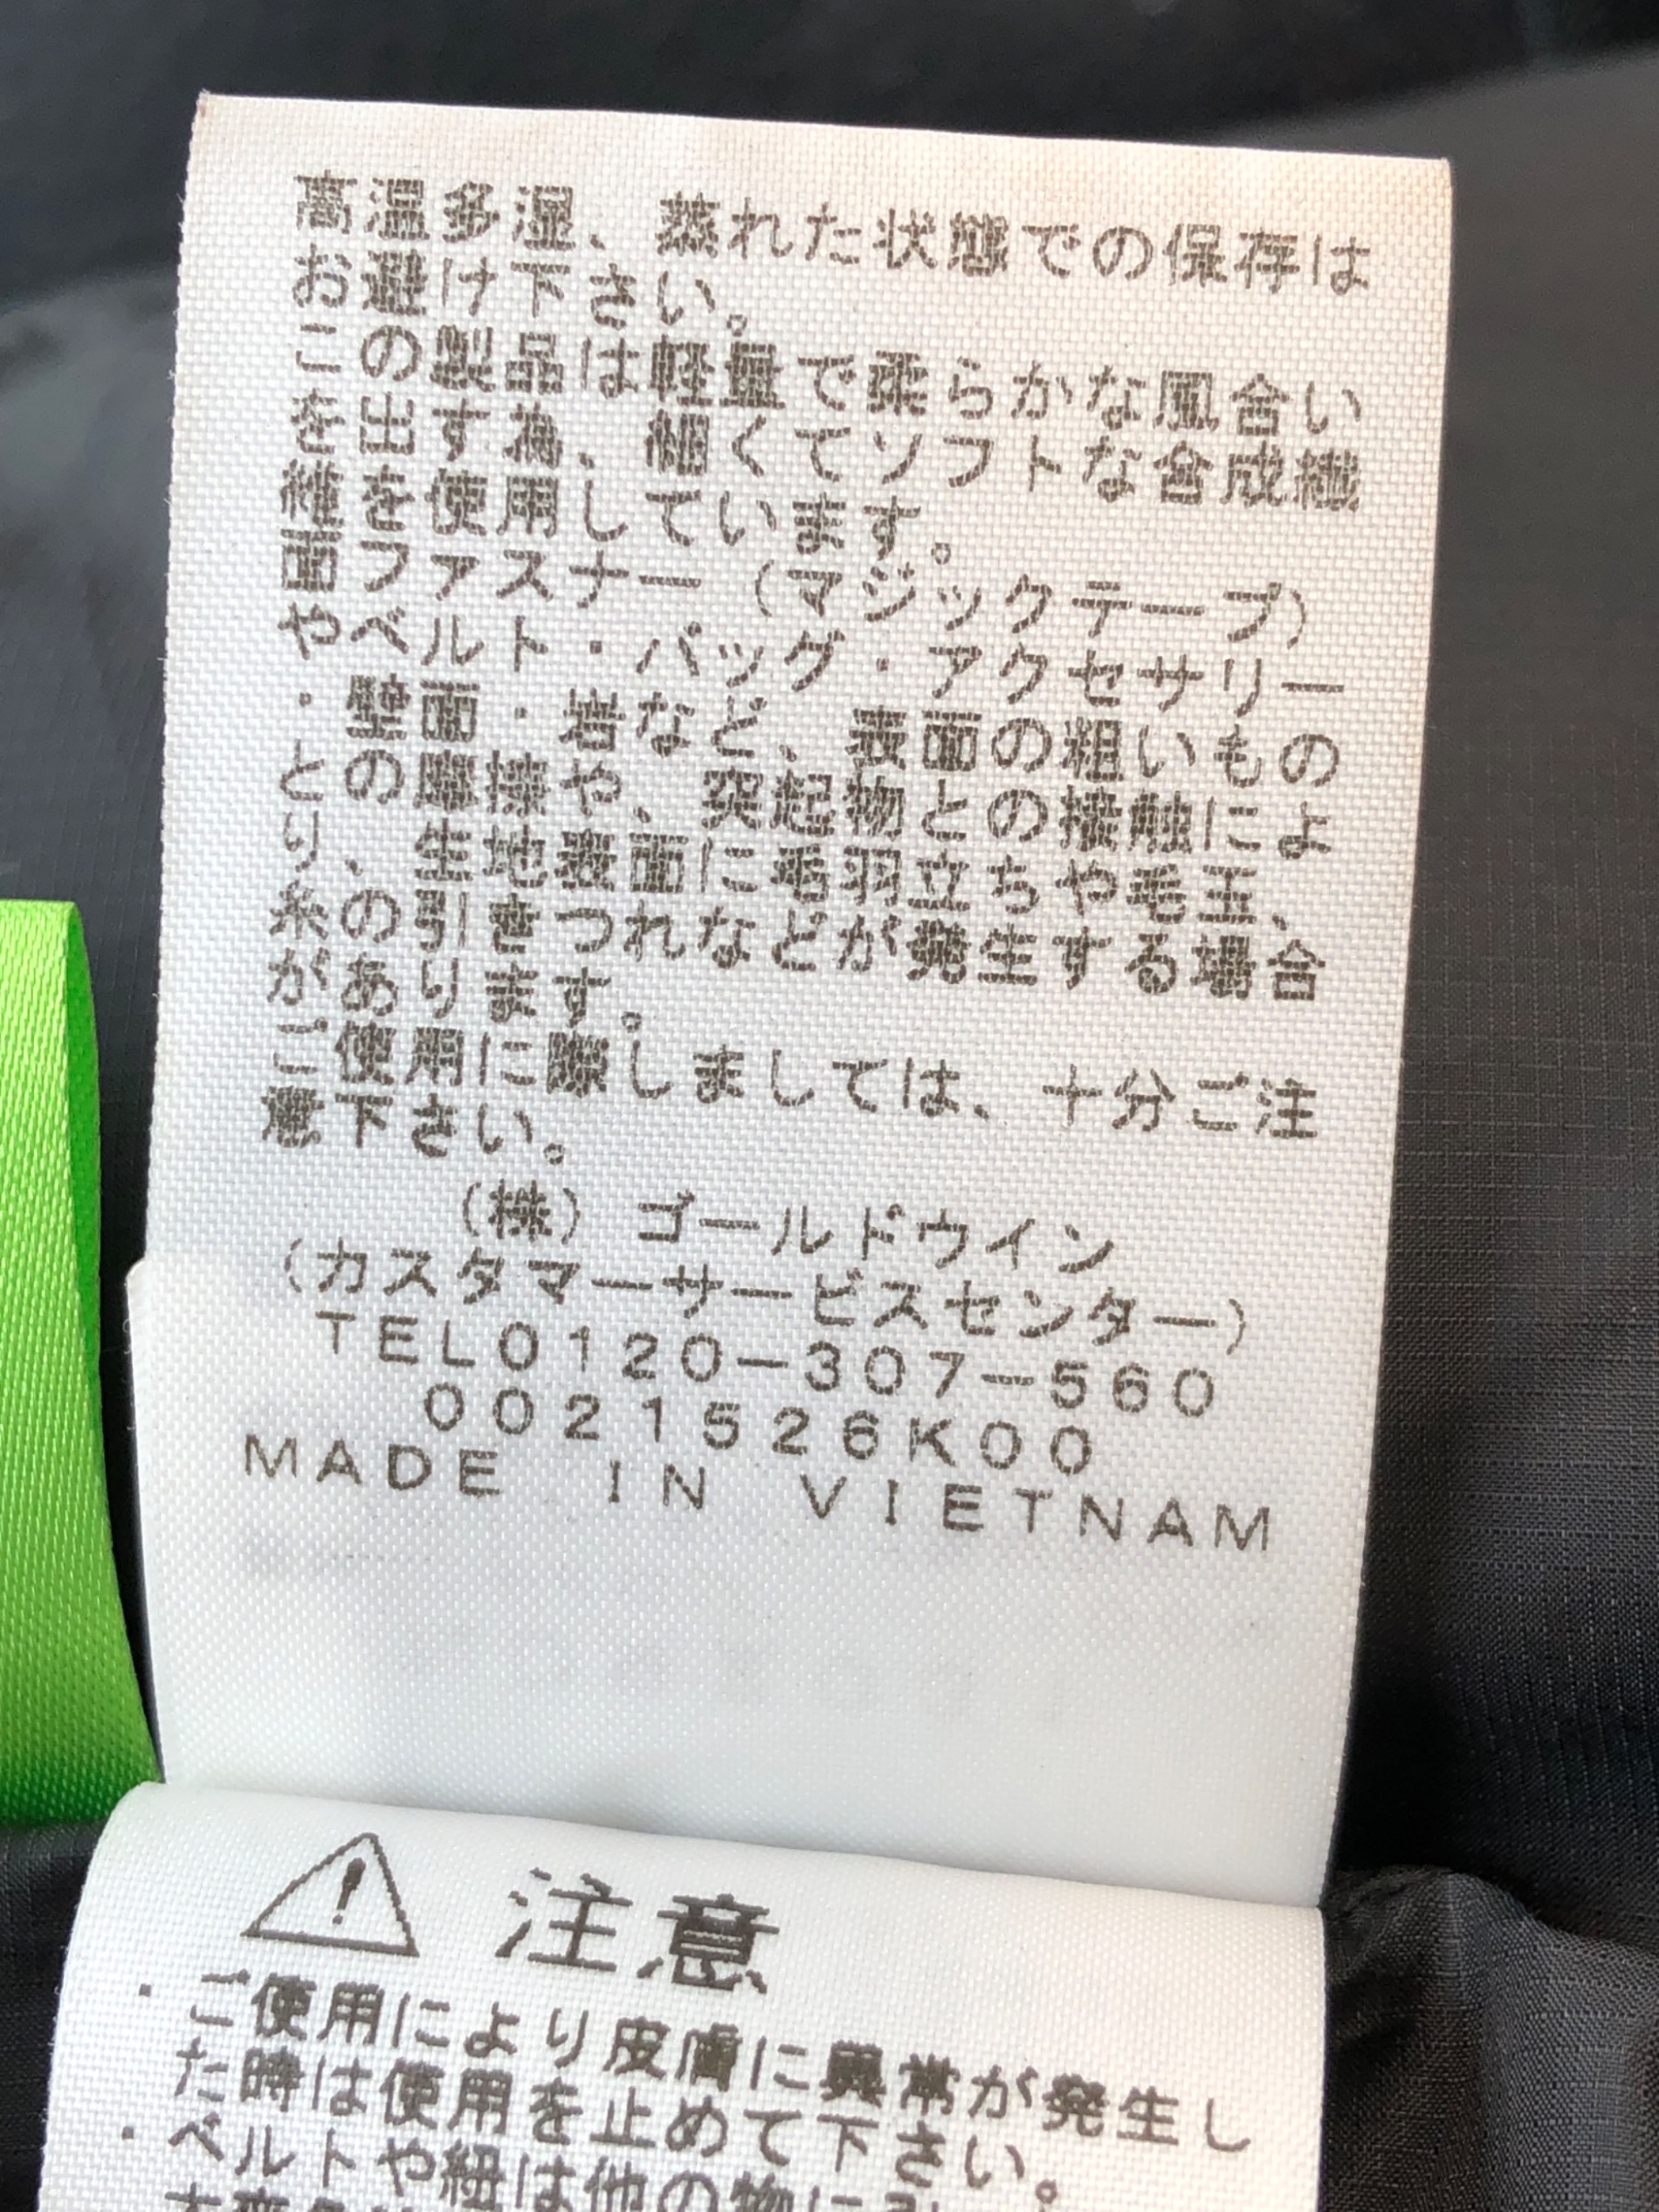 高温多湿、蒸れた状態での保存は
お避け下さい。
この製品は軽量で柔らかな風合い
を出す為、細くてソフトな合成繊
維を使用しています。
面ファスナー（マジックテープ）
やベルト・バッグ・アクセサリー
・壁面・岩など、表面の粗いもの
との摩擦や、突起物との接触によ
り、生地表面に毛羽立ちや毛玉、
糸の引きつれなどが発生する場合
があります。
ご使用に際しましては、十分ご注
意下さい。
（株）ゴールドウイン
（カスタマーサービスセンター）
TEL0120-307-560
0021526K00
MADE IN VIETNAM
注意
・ご使用により皮膚に異常が発生し
た時は使用を止めて下さい。
・ベルトや紐は他の物に引